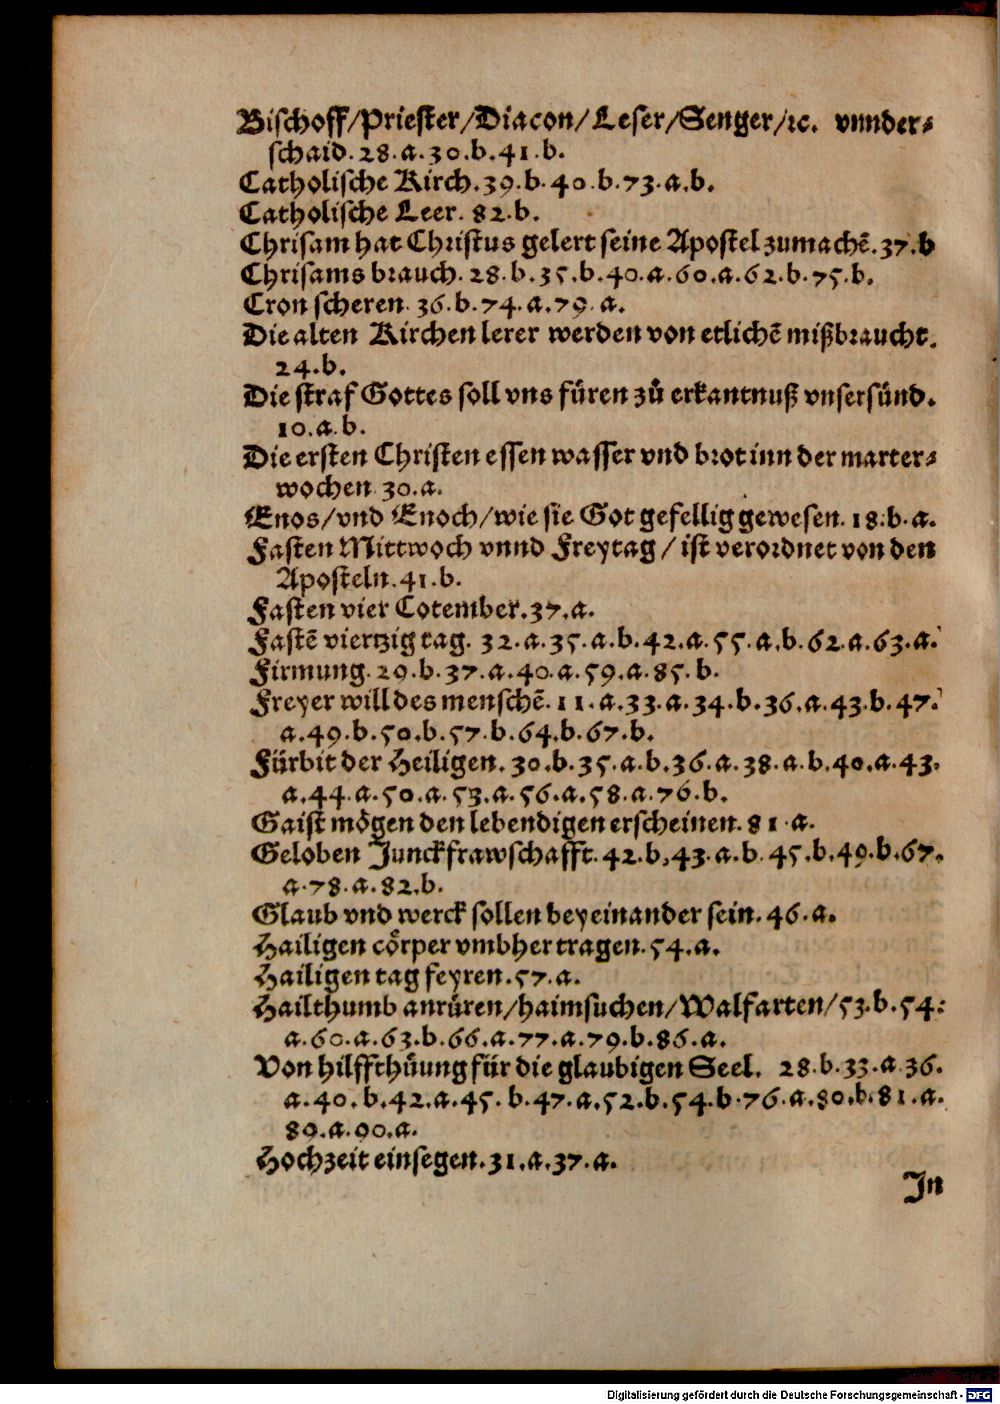 Bischoff/Priester/Diacon/Leser/Senger/ꝛc. vnnder⸗
schaid. 28.a.30.b.41.b.
Catholische Kirch.39.b.40.b.73.a.b.
Catholische Leer. 82.b.
Chrisam hat Christus gelert seine Apostel zumachẽ.37.b
Chrisams brauch. 28.b.35.b.40.a.60.a.62.b.75.b.
Cron scheren. 36.b.74.a.79.a.
Die alten Kirchen lerer werden von etlichẽ mißbraucht.
24.b.
Die straf Gottes soll vns füren zů erkantnuß vnser sünd.
10.a.b.
Die ersten Christen essen wasser vnd brot inn der marter⸗
wochen 30.a.
Enos/vnd Enoch/wie sie Got gefellig gewesen. 18.b.a.
Fasten Mittwoch vnnd Freytag/ist verordnet von den
Aposteln.41.b.
Fasten vier Cotember.37.a.
Fastẽ viertzig tag. 32.a.35.a.b.42.a.55.a.b.62.a.63.a.
Firmung. 29.b.37.a.40.a.59.a.85.b.
Freyer will des menschẽ. 11.a.33.a.34.b.36.a.43.b.47.
a.49.b.50.b.57.b.64.b.67.b.
Fürbit der Heiligen. 30.b.35.a.b.36.a.38.a.b.40.a.43.
a.44.a.50.a.53.a.56.a.58.a.76.b.
Gaist mögen den lebendigen erscheinen. 81.a.
Geloben Junckfrawschafft. 42.b,43.a.b.45.b.49.b.67.
a.78.a.82.b.
Glaub vnd werck sollen beyeinander sein. 46.a.
Hailigen cörper vmbher tragen. 54.a.
Hailigen tag feyren.57.a.
Hailthumb anrüren/haimsuchen/Walfarten/53.b.54.
a.60.a.63.b.66.a.77.a.79.b.86.a.
Von hilffthůung für die glaubigen Seel. 28.b.33.a.36.
a.40.b.42.a.45.b.47.a.52.b.54.b.76.a.80.b.81.a.
89.a.90.a.
Hochzeit einsegen.31.a.37.a.
In
Digitalisierung gefördert durch die Deutsche Forschungsgemeinschaft - DFG